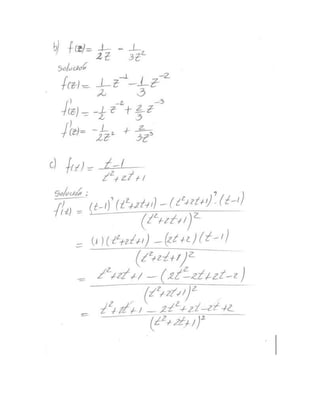 b) f(z) = 1/2z - 1/3z²
Solución
f(z) = 1/2 z⁻¹ - 1/3 z⁻²
f'(z) = -1/2 z⁻² + 2/3 z⁻³
f'(z) = -1/2z² + 2/3z³
c) f(t) = t-1/t²+2t+1
Solución:
f'(t) = (t-1)'(t²+2t+1) - (t²+2t+1)'·(t-1)/(t²+2t+1)²
= (1)(t²+2t+1) - (2t+2)(t-1)/(t²+2t+1)²
= t²+2t+1 - (2t²-2t+2t-2)/(t²+2t+1)²
= t²+2t+1 - 2t²+2t-2t+2/(t²+2t+1)²